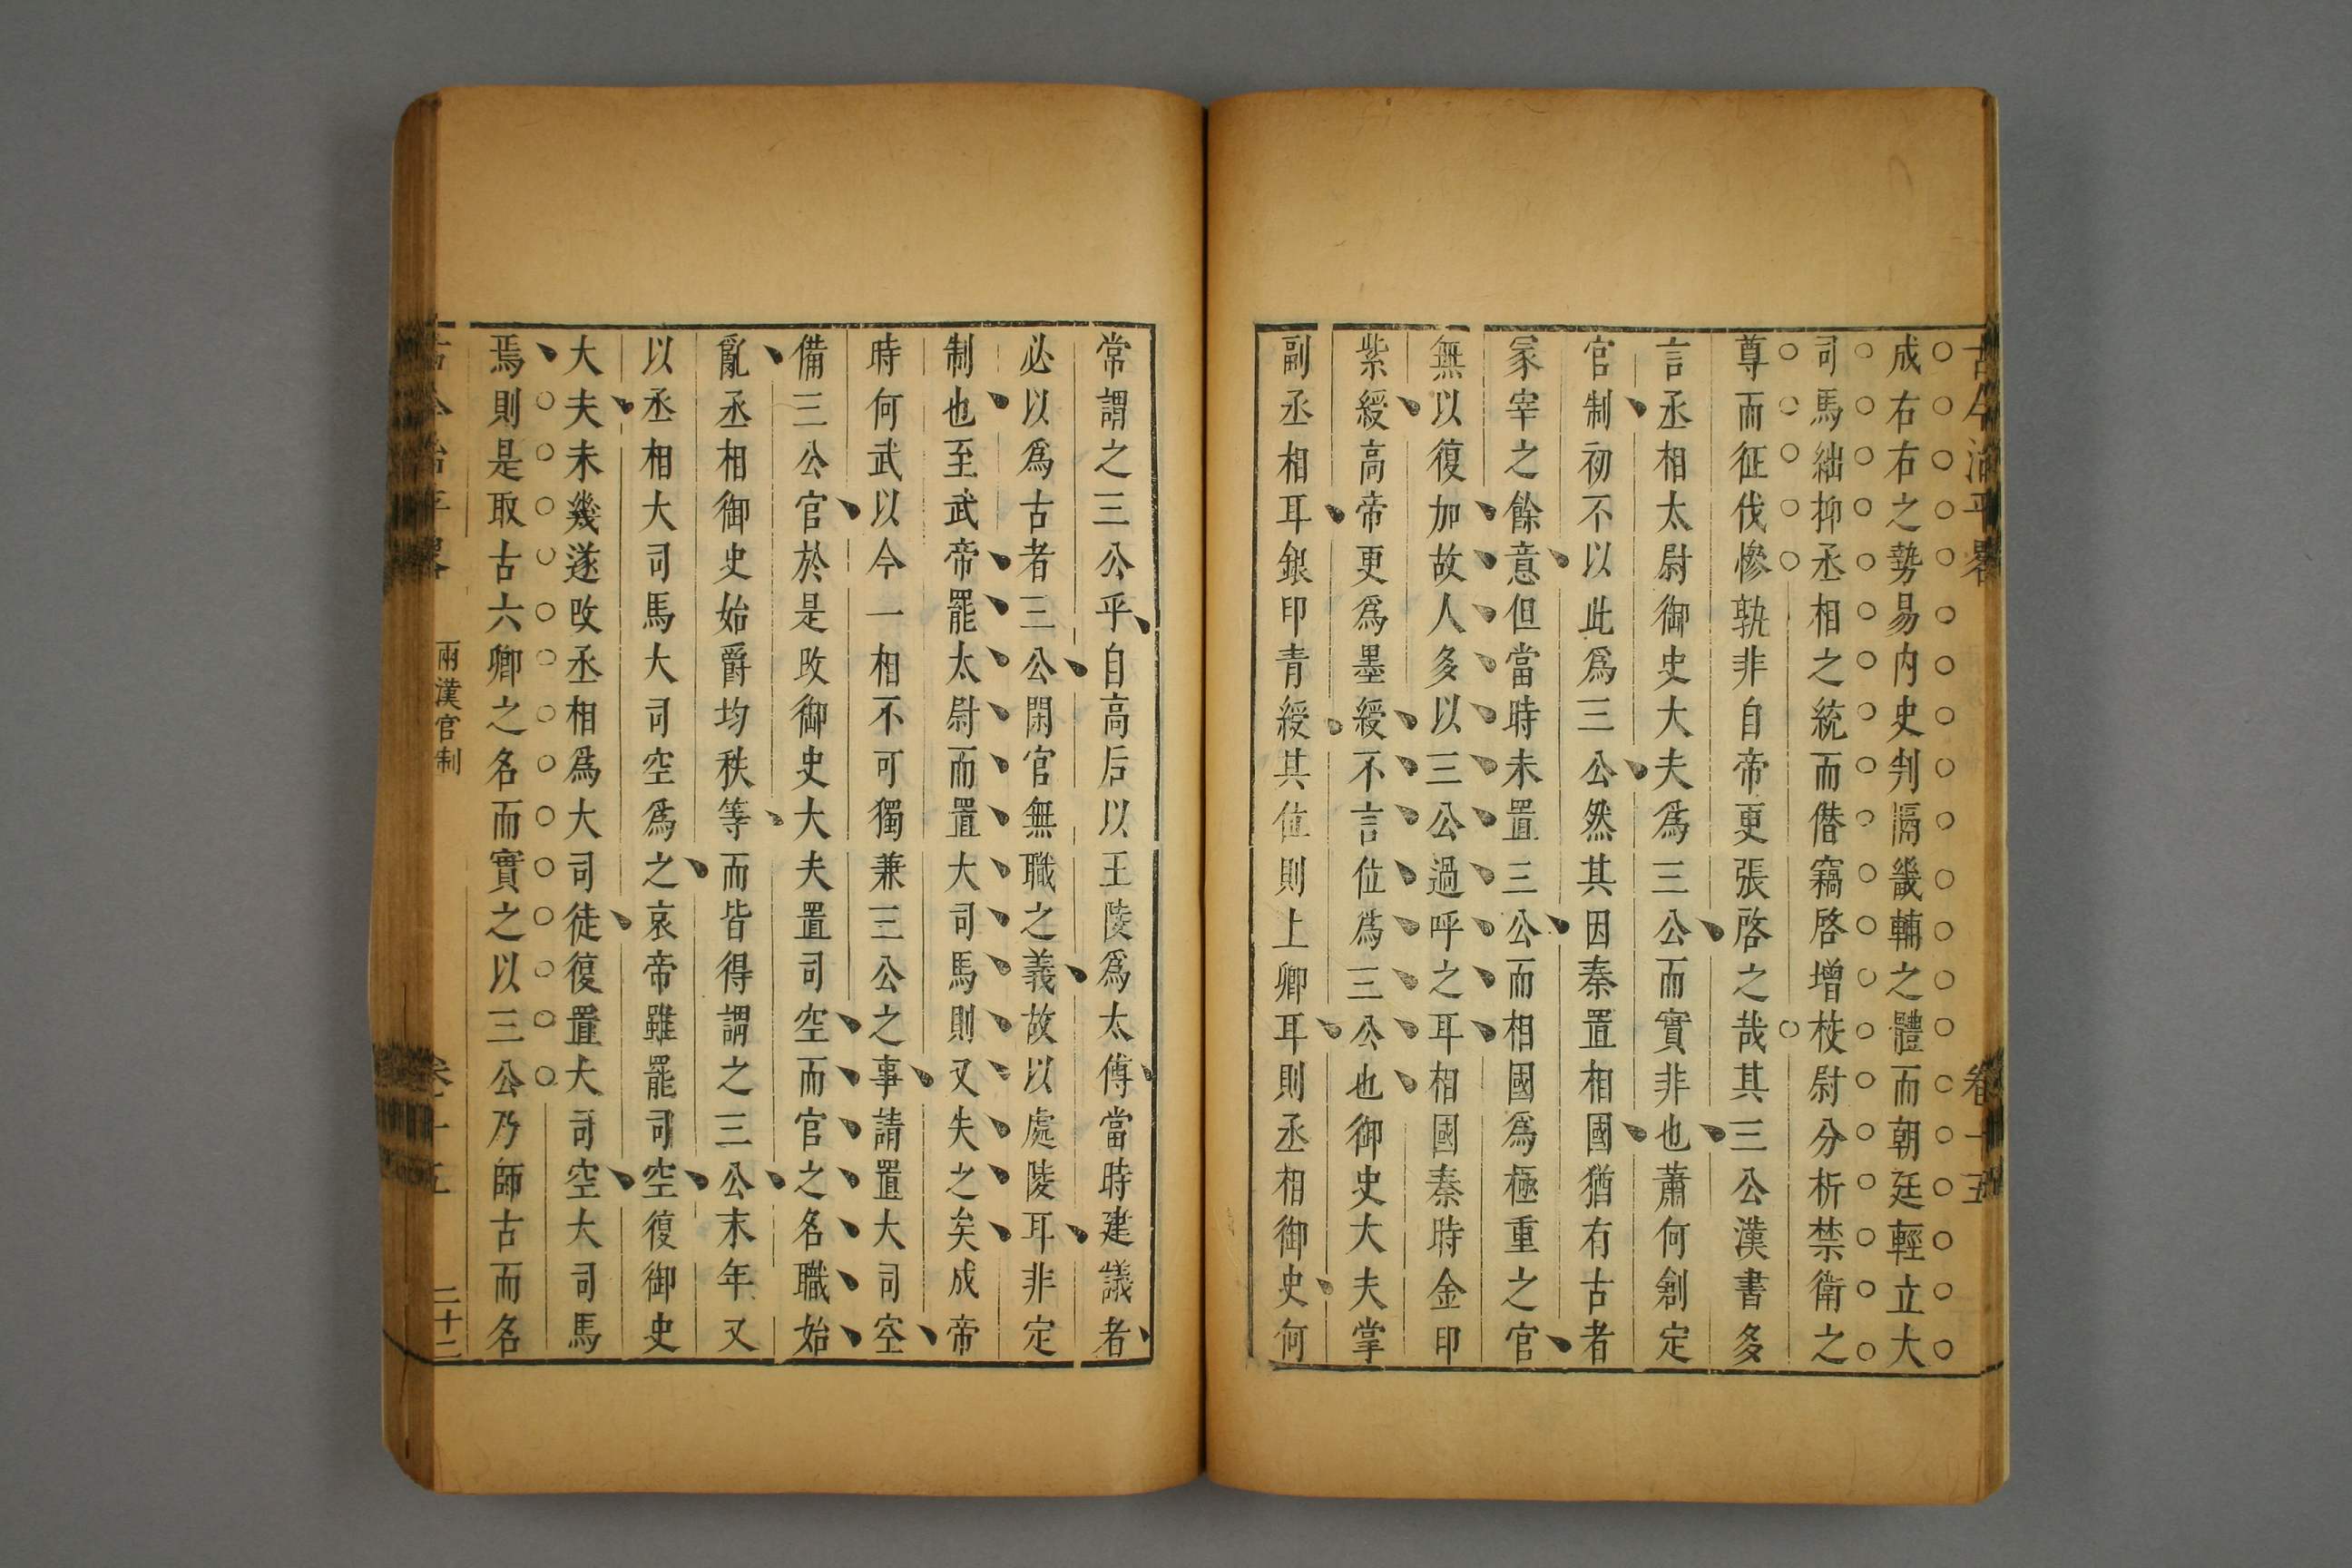 古今治平畧 卷十五
成右右之勢易内史判隔畿輔之體而朝廷輕立大
司馬絀抑丞相之統而僭竊啓增校尉分析禁衛之
尊而征伐慘孰非自帝更張啓之哉其三公漢書多
言丞相太尉御史大夫爲三公而實非也蕭何創定
官制初不以此爲三公然其因秦置相國猶有古者
冢宰之餘意但當時未置三公而相國爲極重之官
無以復加故人多以三公過呼之耳相國秦時金印
紫綬高帝更爲墨綬不言位爲三公也御史大夫掌
副丞相耳銀印青綬其位則上卿耳則丞相御史何
常謂之三公乎自高后以王陵爲太傅當時建議者
必以爲古者三公閑官無職之義故以處陵耳非定
制也至武帝罷太尉而置大司馬則又失之矣成帝
時何武以今一相不可獨兼三公之事請置大司空
備三公官於是改御史大夫置司空而官之名職始
亂丞相御史始爵均秩等而皆得謂之三公末年又
以丞相大司馬大司空爲之哀帝雖罷司空復御史
大夫未幾遂改丞相爲大司徒復置大司空大司馬
焉則是取古六卿之名而實之以三公乃師古而名
古今治平畧 兩漢官制 卷十五 二十二